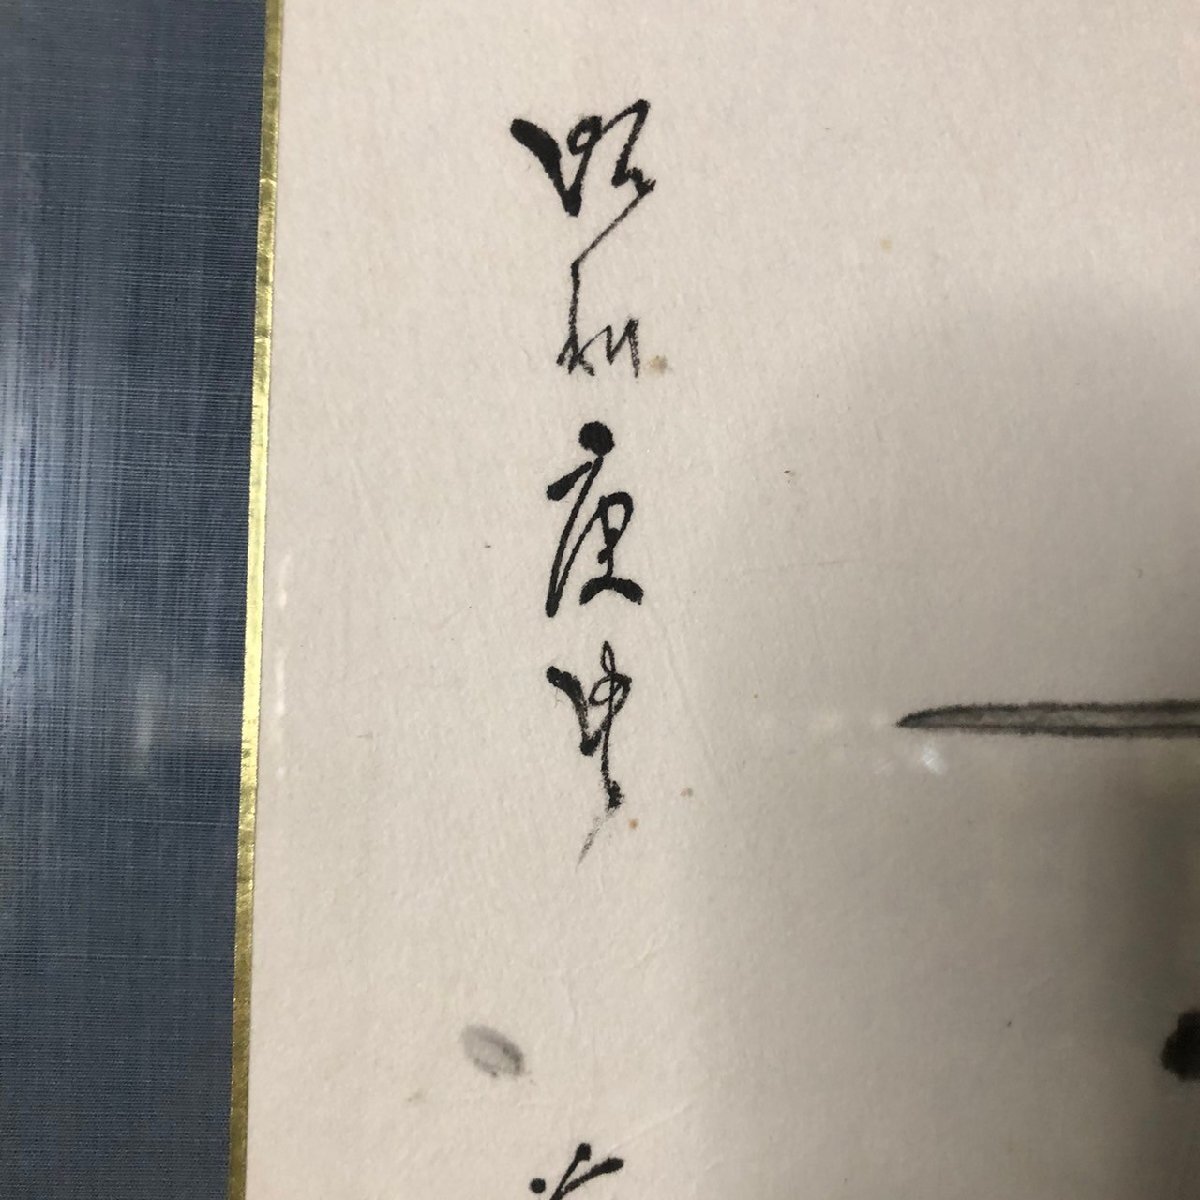 昭和庚申